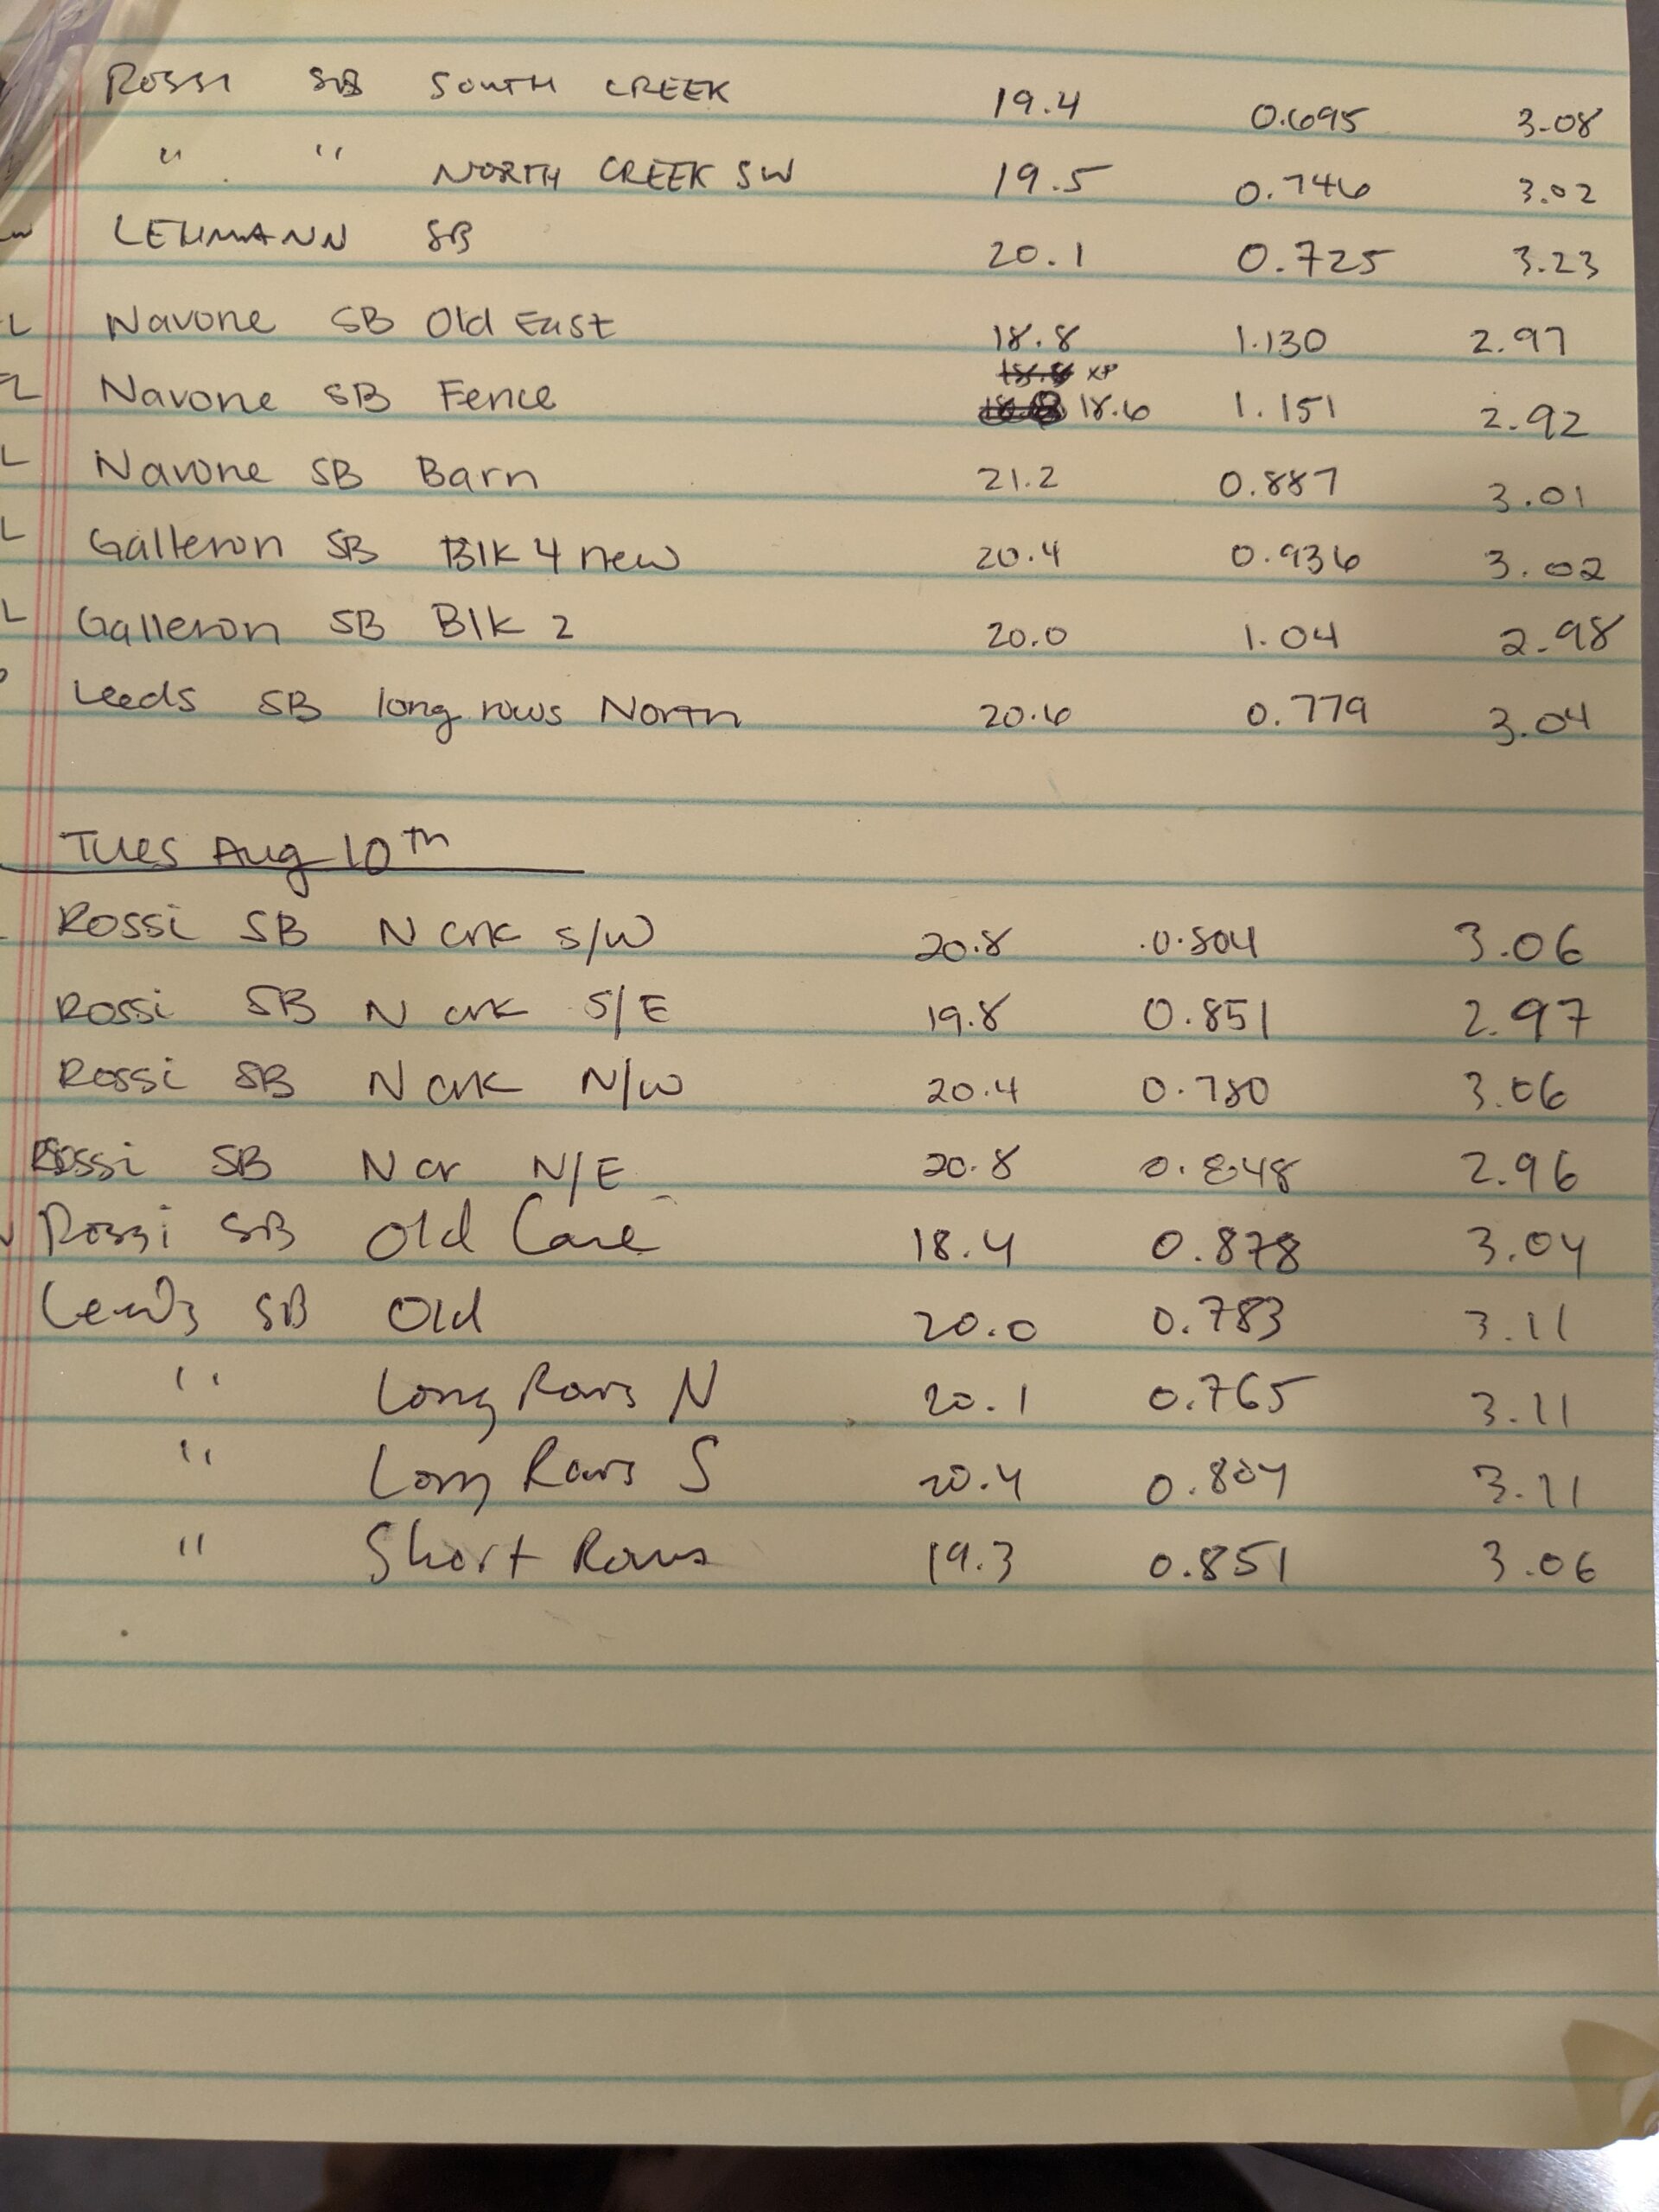 ROSSI SB SOUTH CREEK 19.4 0.695 3.08
" " NORTH CREEK SW 19.5 0.746 3.02
LEHMANN SB 20.1 0.725 3.23
L Navone SB Old East 18.8 1.130 2.97
L Navone SB Fence 18.6 1.151 2.92
L Navone SB Barn 21.2 0.887 3.01
L Galleron SB Blk 4 new 20.4 0.936 3.02
L Galleron SB Blk 2 20.0 1.04 2.98
Leeds SB long rows North 20.6 0.779 3.04
Tues Aug 10th
Rossi SB N crk S/W 20.8 0.804 3.06
Rossi SB N crk S/E 19.8 0.851 2.97
Rossi SB N crk N/W 20.4 0.780 3.06
Rossi SB N cr N/E 20.8 0.848 2.96
Rossi SB Old 18.4 0.878 3.04
Leeds SB Old 20.0 0.783 3.11
" Long Rows N 20.1 0.765 3.11
" Long Rows S 20.4 0.804 3.11
" Short Rows 19.3 0.851 3.06